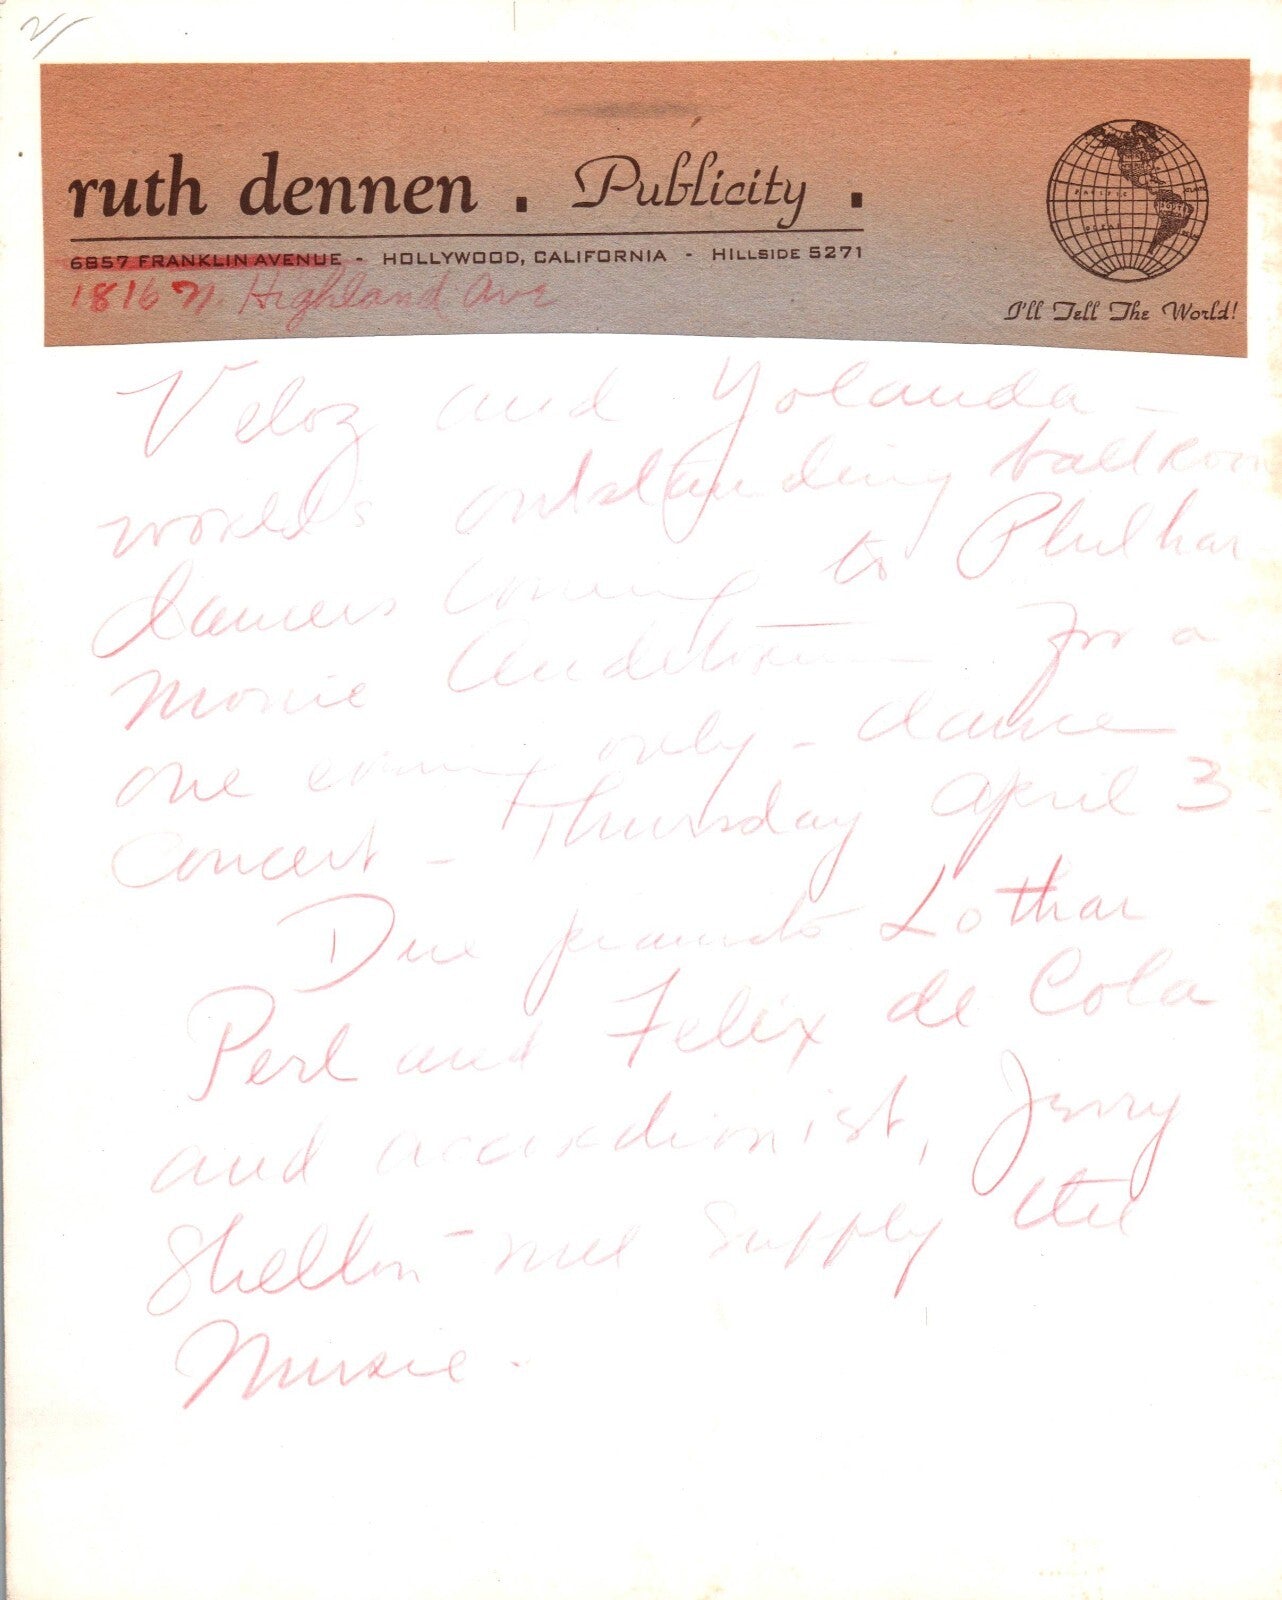 2/
ruth dennen . Publicity .
6857 FRANKLIN AVENUE - HOLLYWOOD, CALIFORNIA - HILLSIDE 5271
1816 N. Highland Ave
I'll Tell The World!
PACIFIC
OCEAN
Veloz and Yolanda -
world's outstanding ballroom
dancers coming to Philhar
monic Auditorium for a
one evening only - dance
concert - Thursday April 3
Due pianists Lothar
Perl and Felix de Cola
and accordionist, Jerry
Shelton - will supply the
Music.